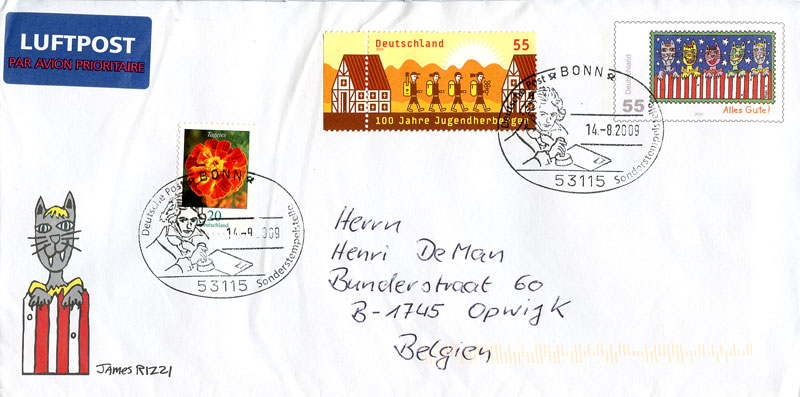 LUFTPOST
PAR AVION PRIORITAIRE
Deutschland 55
2009
100 Jahre Jugendherbergen
Deutschland
55
Alles Gute!
Deutsche Post
BONN
14.-8.2009
53115
Sonderstempelstelle
Tagetes
20
Deutschland
Deutsche Post
BONN
53115
Sonderstempelstelle
Herrn
Henri De Man
Bunderstraat 60
B-1745 Opwijk
Belgien
JAMES RIZZI